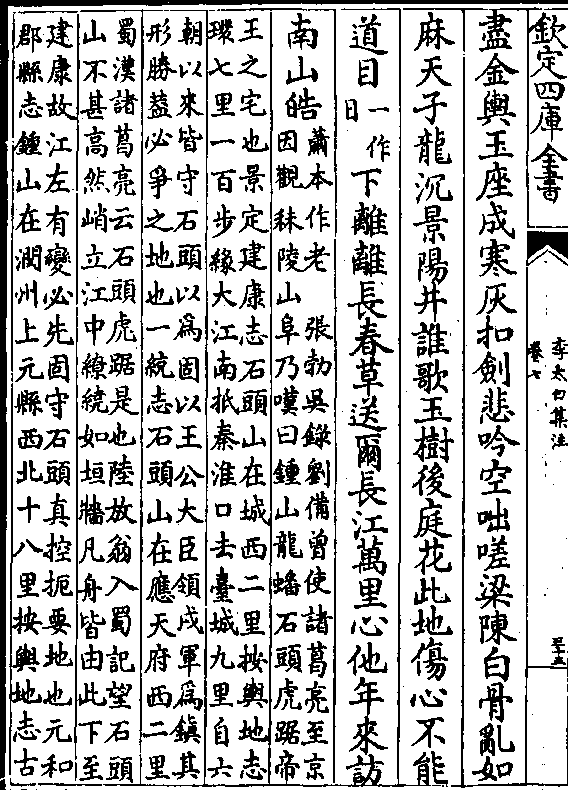 欽定四庫全書
李太白集注
卷七
三十五
盡金輿玉座成寒灰扣劍悲吟空咄嗟梁陳白骨亂如
麻天子龍沉景陽井誰歌玉樹後庭花此地傷心不能
道目一作日下離離長春草送爾長江萬里心他年來訪
南山皓蕭本作老　張勃吳録劉備曾使諸葛亮至京
因觀秣陵山阜乃嘆曰鍾山龍蟠石頭虎踞帝
王之宅也景定建康志石頭山在城西二里按輿地志
環七里一百步緣大江南抵秦淮口去臺城九里自六
朝以來皆守石頭以為固以王公大臣領戍軍為鎮其
形勝葢必爭之地也一統志石頭山在應天府西二里
蜀漢諸葛亮云石頭虎踞是也陸放翁入蜀記望石頭
山不甚高然峭立江中繚繞如垣牆凡舟皆由此下至
建康故江左有變必先固守石頭真控扼要地也元和
郡縣志鍾山在潤州上元縣西北十八里按輿地志古